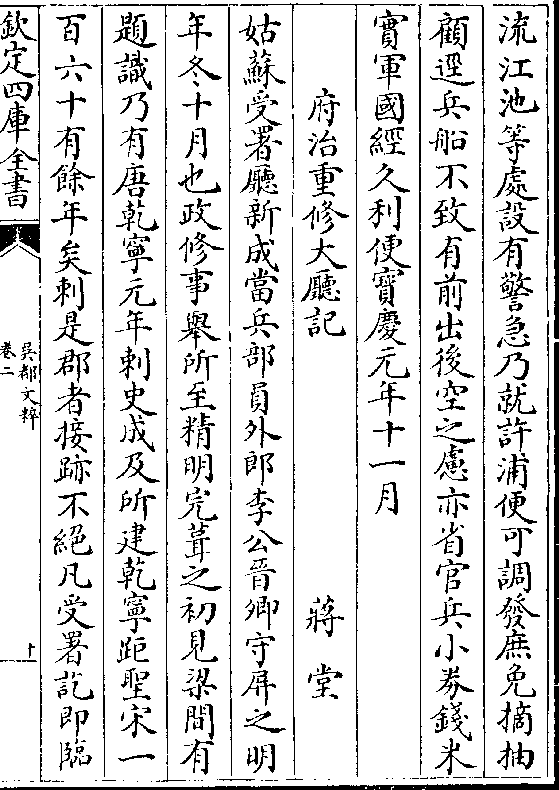 流江池等處設有警急乃就許浦便可調發庶免摘抽
顧逕兵船不致有前出後空之慮亦省官兵小券錢米
實軍國經久利便寶慶元年十一月
府治重修大廳記 蔣堂
姑蘇受署廳新成當兵部員外郎李公晉卿守屏之明
年冬十月也政修事舉所至精明完葺之初見梁間有
題識乃有唐乾寧元年刺史成及所建乾寧距聖宋一
百六十有餘年矣刺是郡者接跡不絕凡受署訖即臨
欽定四庫全書
吳都文粹
卷二
十